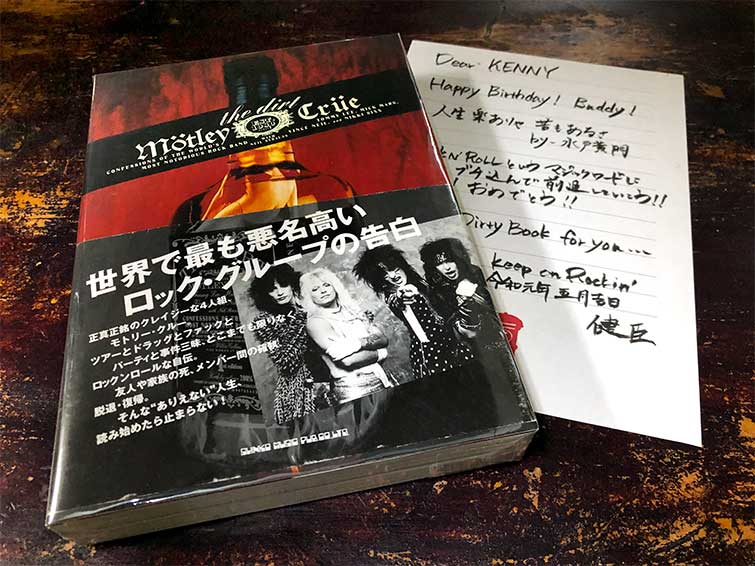 the dirt
Mötley Crüe
CONFESSIONS OF THE WORLD'S
MOST NOTORIOUS ROCK BAND
TOMMY LEE, MICK MARS,
VINCE NEIL, NIKKI SIXX
世界で最も悪名高い
ロック・グループの告白
正真正銘のクレイジーな4人組、
モトリー・クルー。
ツアーとドラッグとファックと
パーティと事件三昧、どこまでも限りなく
ロックンロールな自伝。
友人や家族の死、メンバー間の確執、
脱退・復帰。
そんな“ありえない”人生、
読み始めたら止まらない!
SHINKO MUSIC PUB.CO.LTD.
Dear. KENNY
Happy Birthday! Buddy!
人生楽ありゃ 苦もあるさ
by- 水戸黄門
N' ROLLという マジックワードに
ブチ込んで 前進していこう!!
おめでとう!!
Dirty Book for you....
Keep on Rockin'
令和元年 五月吉日
健臣